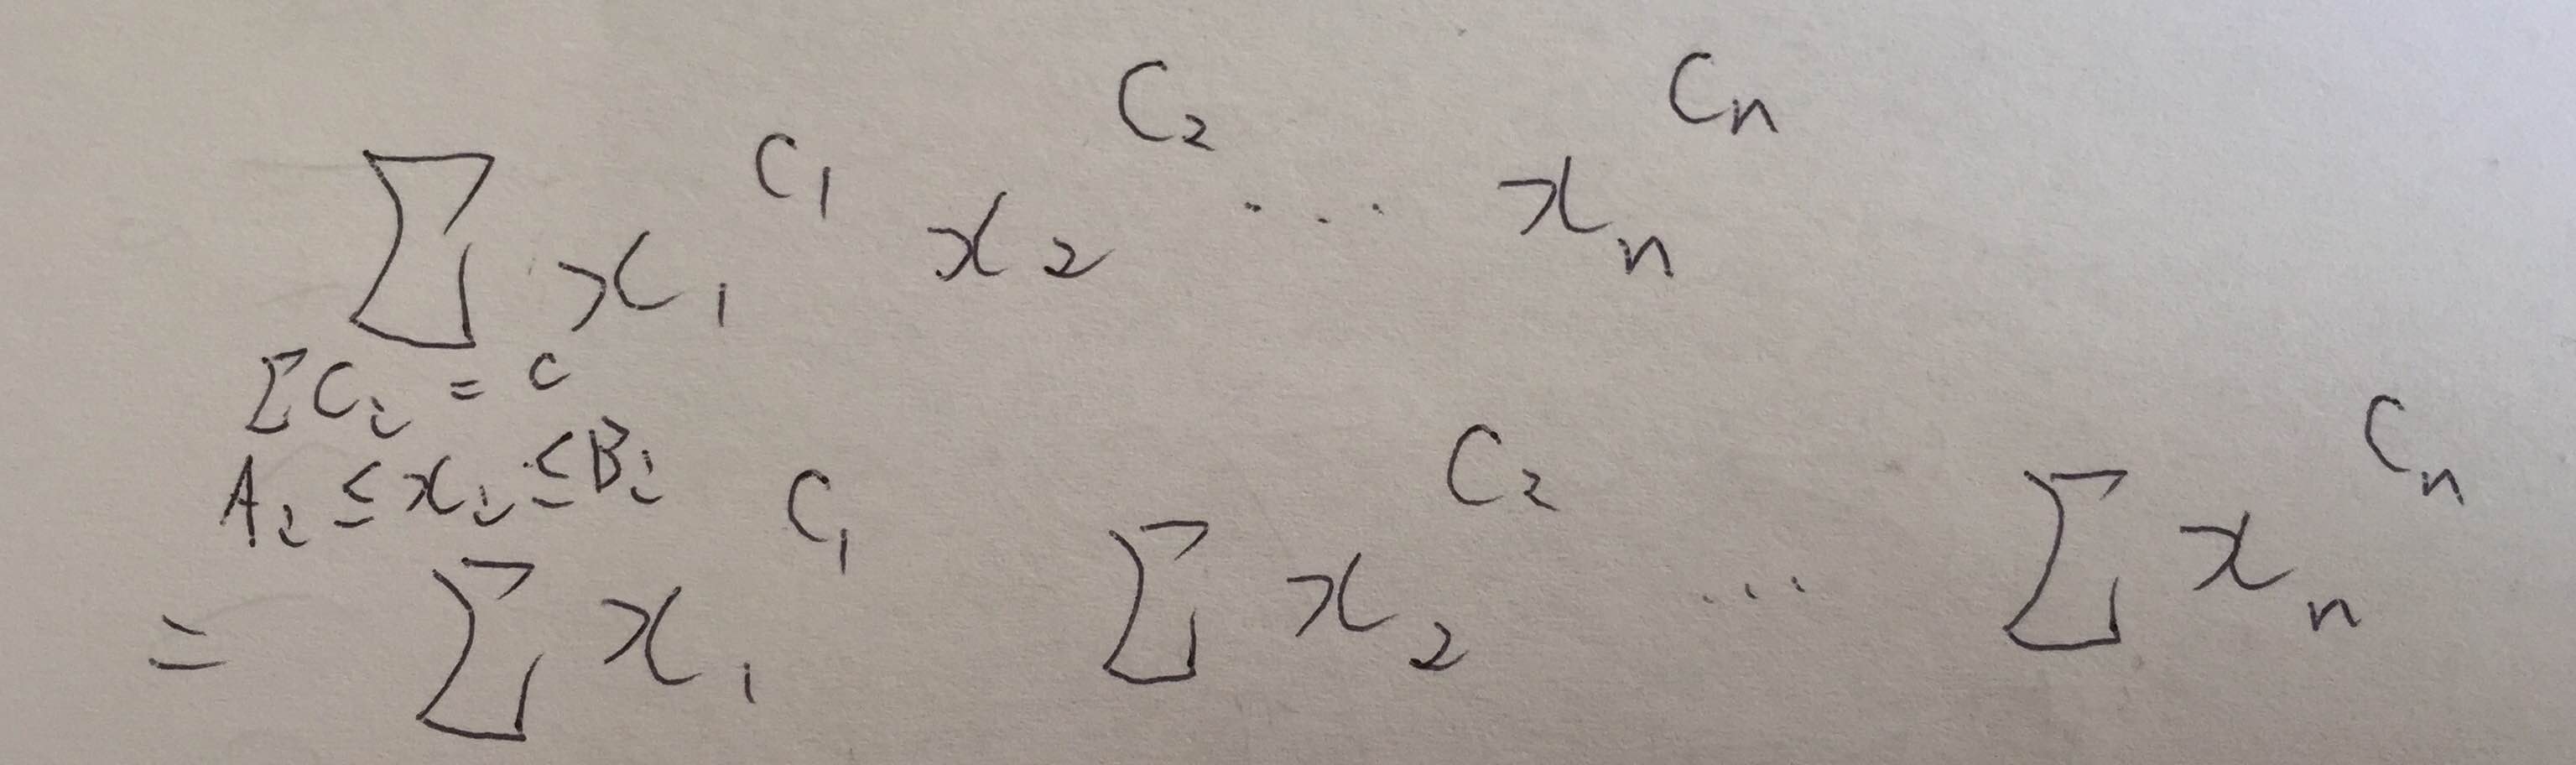 ∑ x₁^C₁ x₂^C₂ ... xₙ^Cₙ
∑Cᵢ = C
Aᵢ ≤ xᵢ ≤ Bᵢ
= ∑ x₁^C₁ ∑ x₂^C₂ ... ∑ xₙ^Cₙ